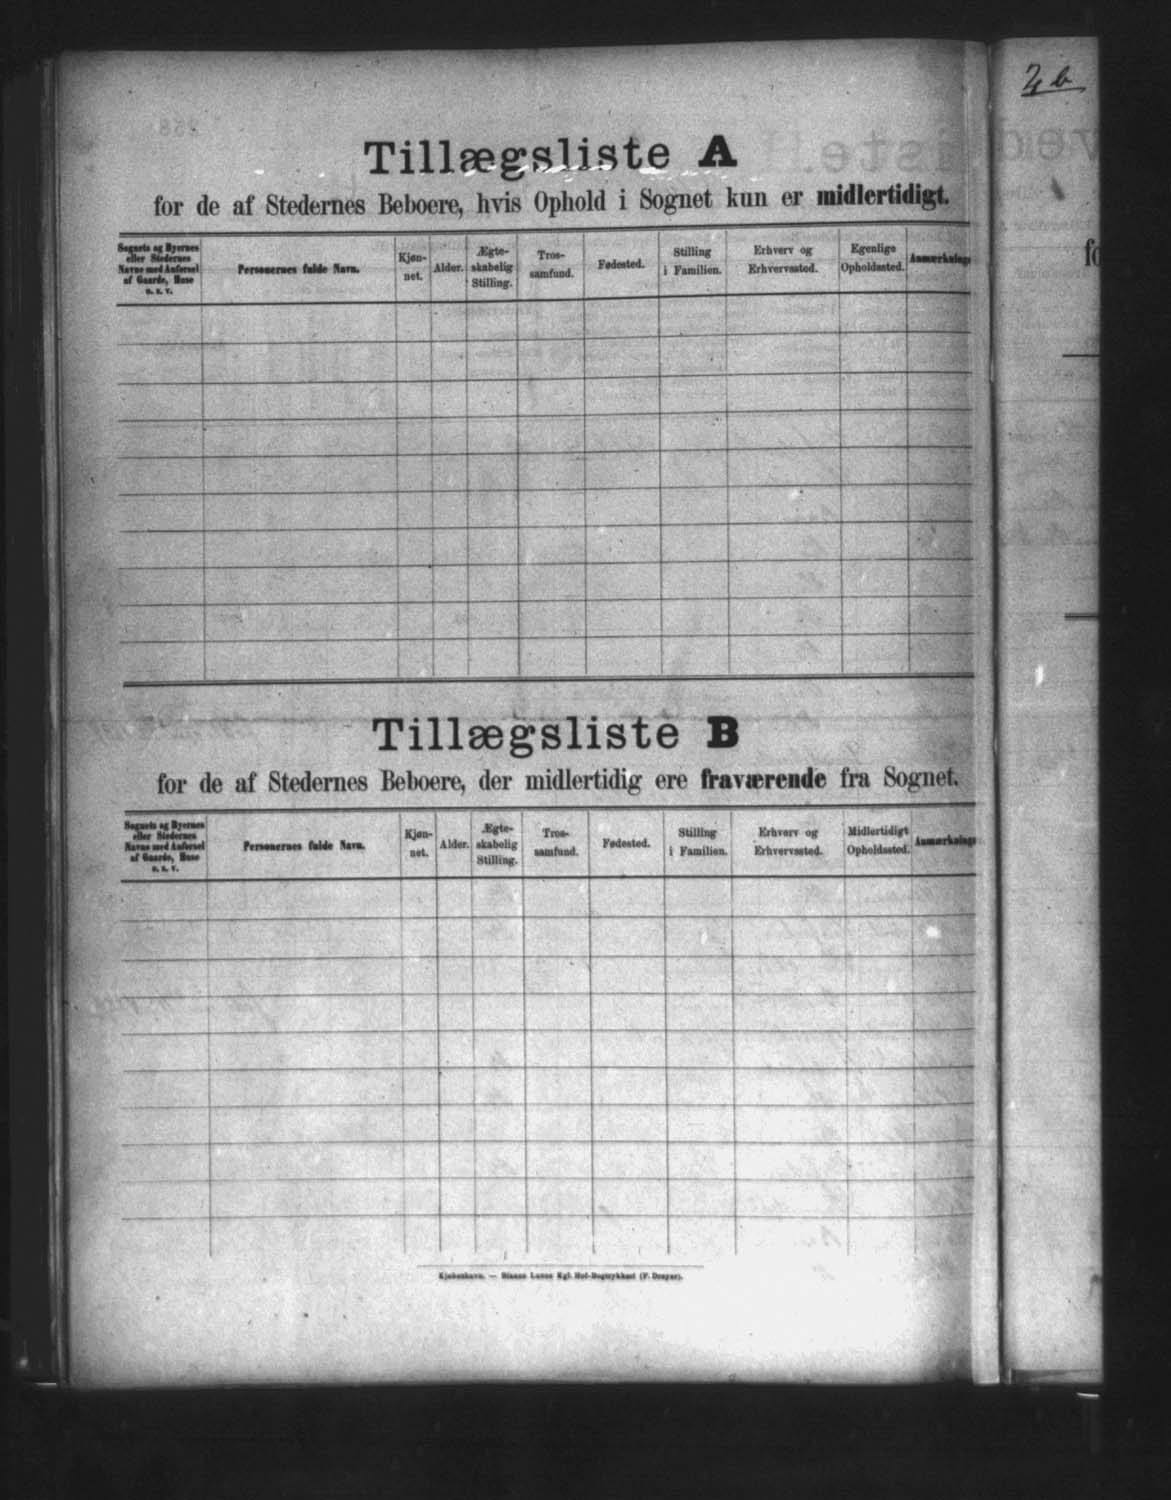 2 b
Tillægsliste A
for de af Stedernes Beboere, hvis Ophold i Sognet kun er midlertidigt.
Sognets og Byernes
eller Stedernes
Navne med Anførsel
af Gaarde, Huse
o. s. v.
Personernes fulde Navn.
Kjøn-
net.
Alder.
Ægte-
skabelig
Stilling.
Tros-
samfund.
Fødested.
Stilling
i Familien.
Erhverv og
Erhvervssted.
Egenlige
Opholdssted.
Anmærkninge
Tillægsliste B
for de af Stedernes Beboere, der midlertidig ere fraværende fra Sognet.
Sognets og Byernes
eller Stedernes
Navne med Anførsel
af Gaarde, Huse
o. s. v.
Personernes fulde Navn.
Kjøn-
net.
Alder.
Ægte-
skabelig
Stilling.
Tros-
samfund.
Fødested.
Stilling
i Familien.
Erhverv og
Erhvervssted.
Midlertidigt
Opholdssted.
Anmærkninge
Kjøbenhavn. — Bianco Lunos Kgl. Hof-Bogtrykkeri (F. Dreyer).
fo